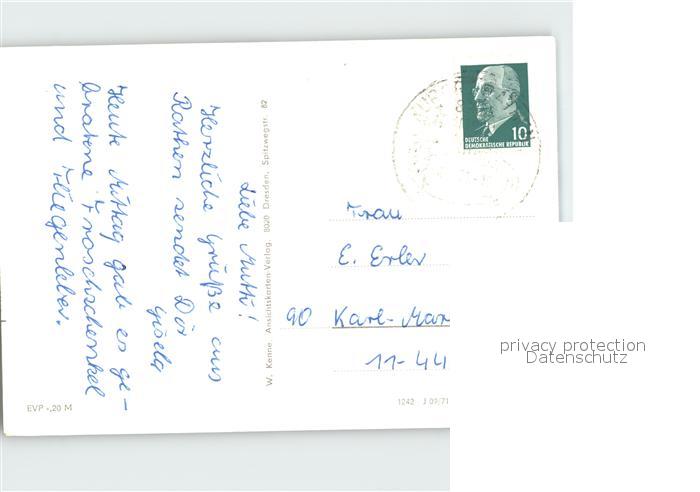 Liebe Mutti!
Herzliche Grüße aus
Rathen sendet Dir
Gisela
Heute Mittag gab es ge-
bratene Froschschenkel
und Fliegenleber.
EVP -,20 M
W. Kenne, Ansichtskarten-Verlag, 8020 Dresden, Spitzwegstr. 82
10
DEUTSCHE
DEMOKRATISCHE REPUBLIK
Frau
E. Erler
90 Karl-Mar
11-44
1242 J 09/71
privacy protection
Datenschutz